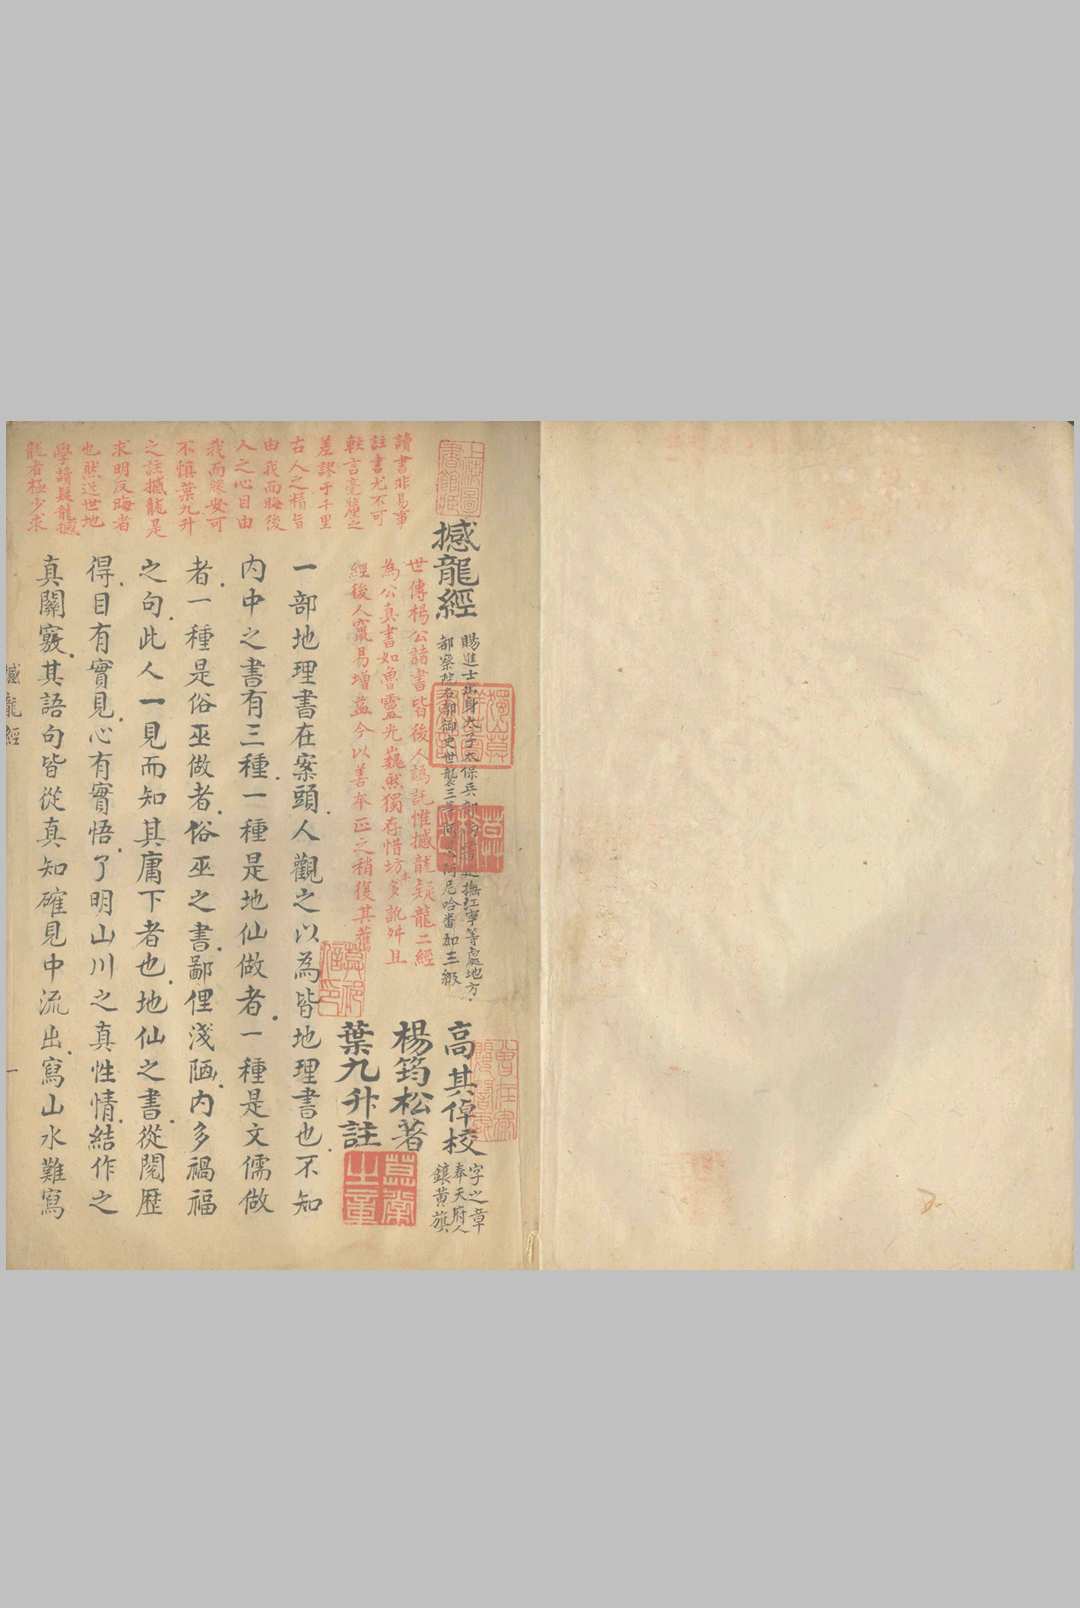 撼龍經
賜進士出身太子太保兵部
撫江寧等處地方
都察院右都御史世襲三等
阿尼哈番加三級
高其倬校
字之章
奉天府人
鑲黃旗
楊筠松著
葉九升註
世傳楊公諸書皆後人譌託惟撼龍疑龍二經
為公真書如魯靈光巍然獨存惜坊本多訛舛且
經後人竄易增益今以善本正之稍復其舊
讀書非易事
註書尤不可
輕言毫釐之
差謬于千里
古人之精旨
由我而晦後
人之心目由
我而昧安可
不慎葉九升
之註撼龍是
求明反晦者
也然近世地
學諸疑龍撼
龍者極少求
一部地理書在案頭人觀之以為皆地理書也不知
內中之書有三種一種是地仙做者一種是文儒做
者一種是俗巫做者俗巫之書鄙俚淺陋內多禍福
之句此人一見而知其庸下者也地仙之書從閱歷
得目有實見心有實悟了明山川之真性情結作之
真關竅其語句皆從真知確見中流出寫山水難寫
撼龍經
一